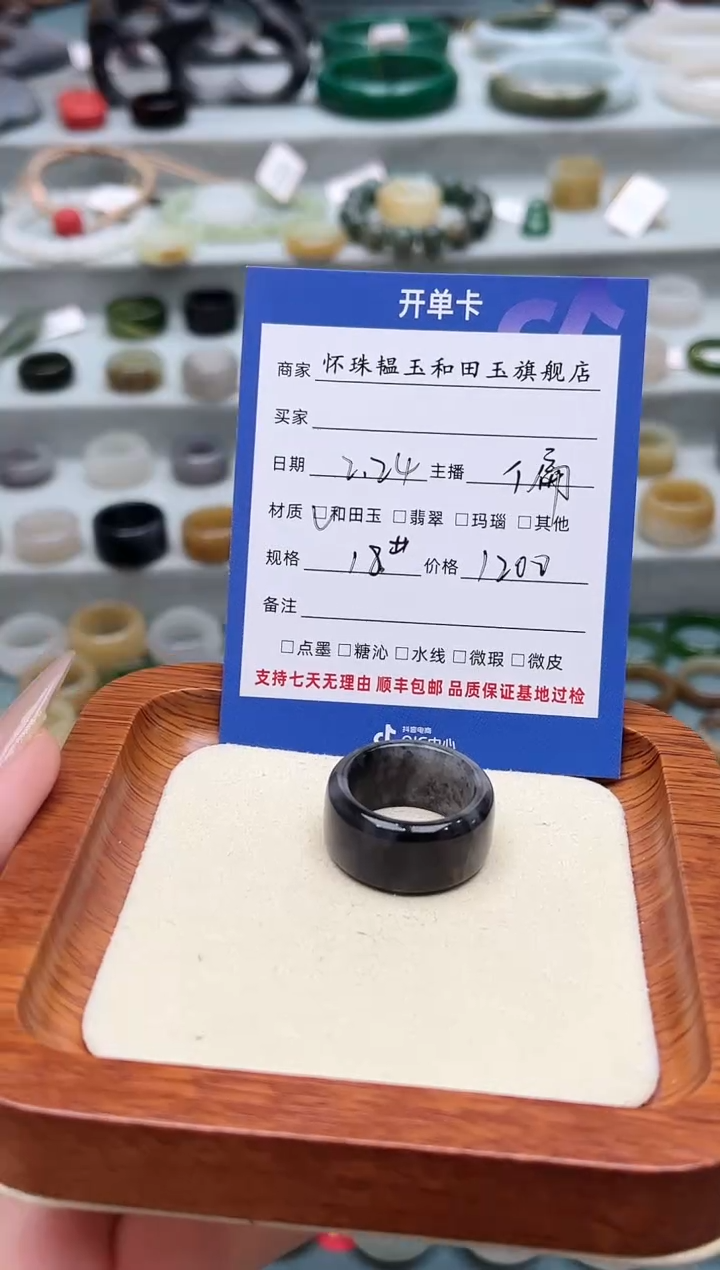 开单卡
商家 怀珠韫玉和田玉旗舰店
买家
日期 2.24 主播
材质 ☑和田玉 □翡翠 □玛瑙 □其他
规格 18# 价格 1200
备注
□点墨 □糖沁 □水线 □微瑕 □微皮
支持七天无理由 顺丰包邮 品质保证基地过检
抖音电商
QIC中心